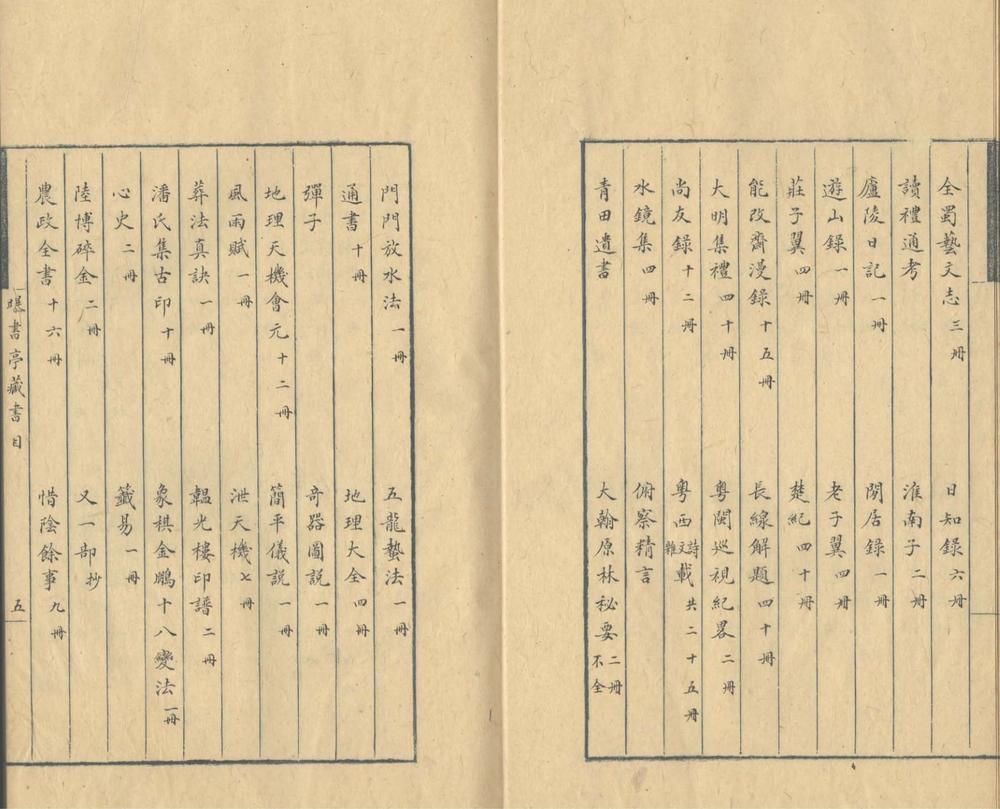 全蜀藝文志三冊 日知錄六冊
讀禮通考 淮南子二冊
廬陵日記一冊 閒居錄一冊
遊山錄一冊 老子翼四冊
莊子翼四冊 楚紀四十冊
能改齋漫錄十五冊 長線解題四十冊
大明集禮四十冊 粵閩巡視紀畧二冊
尚友錄十二冊 粵西詩文雜載共二十五冊
水鏡集四冊 俯察精言
青田遺書 大翰原林秘要二冊不全
門門放水法一冊 五龍蟄法一冊
通書十冊 地理大全四冊
彈子 奇器圖說一冊
地理天機會元十二冊 簡平儀説一冊
風雨賦一冊 泄天機七冊
葬法真訣一冊 韞光樓印譜二冊
潘氏集古印十冊 象棋金鵬十八變法一冊
心史二冊 籤易一冊
陸博碎金二冊 又一部抄
農政全書十六冊 惜陰餘事九冊
曝書亭藏書目 五